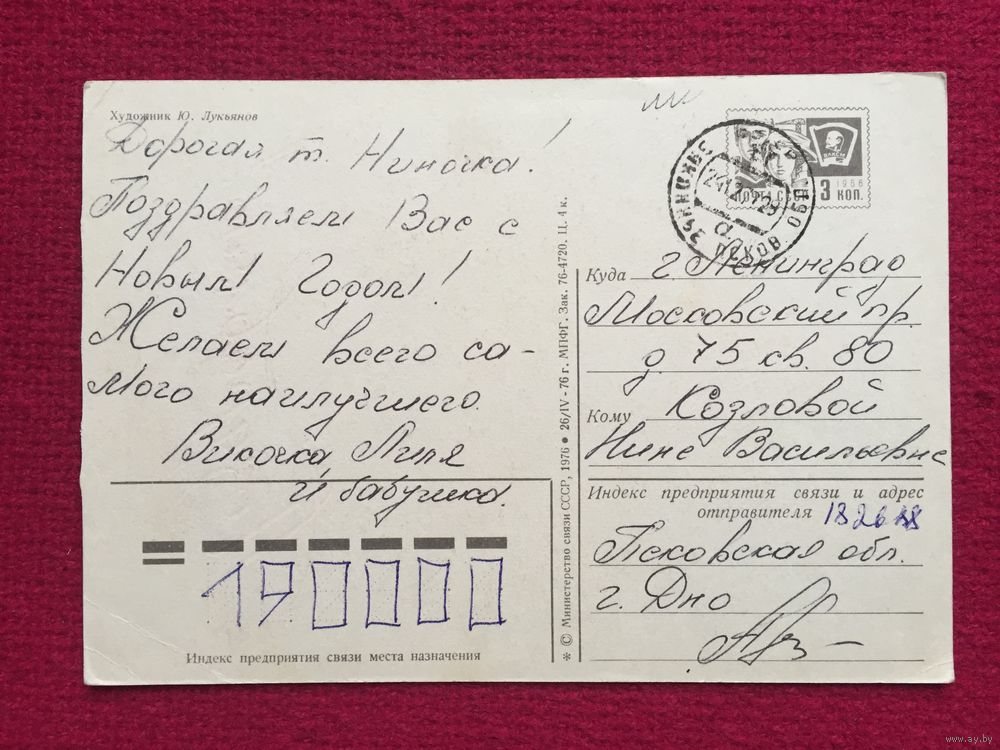 Художник Ю. Лукьянов
Дорогая т. Ниночка!
Поздравляем Вас с
Новым Годом!
Желаем всего са-
мого наилучшего.
Викочка Лиля
и бабушка.
190000
Индекс предприятия связи места назначения
* © Министерство связи СССР, 1976 ● 26/IV - 76 г. МПФГ. Зак. 76-4720. Ц. 4 к.
ВЛКСМ
1966
ПОЧТА СССР 3 КОП.
ПСКОВ. ОБЛ
Куда г. Ленинград
Московский пр.
д. 75 кв. 80
Кому Козловой
Нине Васильевне
Индекс предприятия связи и адрес
отправителя
Псковская обл.
г. Дно
www.ay.by